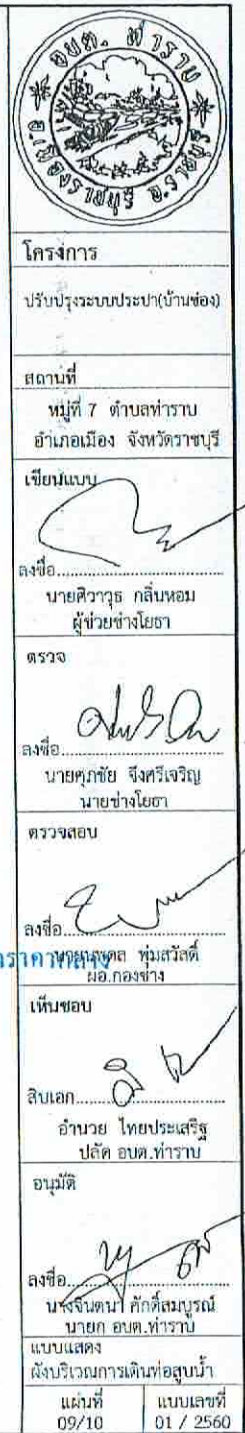 อบต. ท่าราบ
อ.เมืองราชบุรี จ.ราชบุรี
โครงการ
ปรับปรุงระบบประปา(บ้านซ่อง)
สถานที่
หมู่ที่ 7 ตำบลท่าราบ
อำเภอเมือง จังหวัดราชบุรี
เขียนแบบ
ลงชื่อ
นายศิวาวุธ กลิ่นหอม
ผู้ช่วยช่างโยธา
ตรวจ
ลงชื่อ
นายศุภชัย จึงศรีเจริญ
นายช่างโยธา
ตรวจสอบ
ลงชื่อ
พุ่มสวัสดิ์
ผอ.กองช่าง
เห็นชอบ
สิบเอก
อำนวย ไทยประเสริฐ
ปลัด อบต.ท่าราบ
อนุมัติ
ลงชื่อ
นางจินตนา ศักดิ์สมบูรณ์
นายก อบต.ท่าราบ
แบบแสดง
ผังบริเวณการเดินท่อสูบน้ำ
แผ่นที่ แบบเลขที่
09/10 01 / 2560